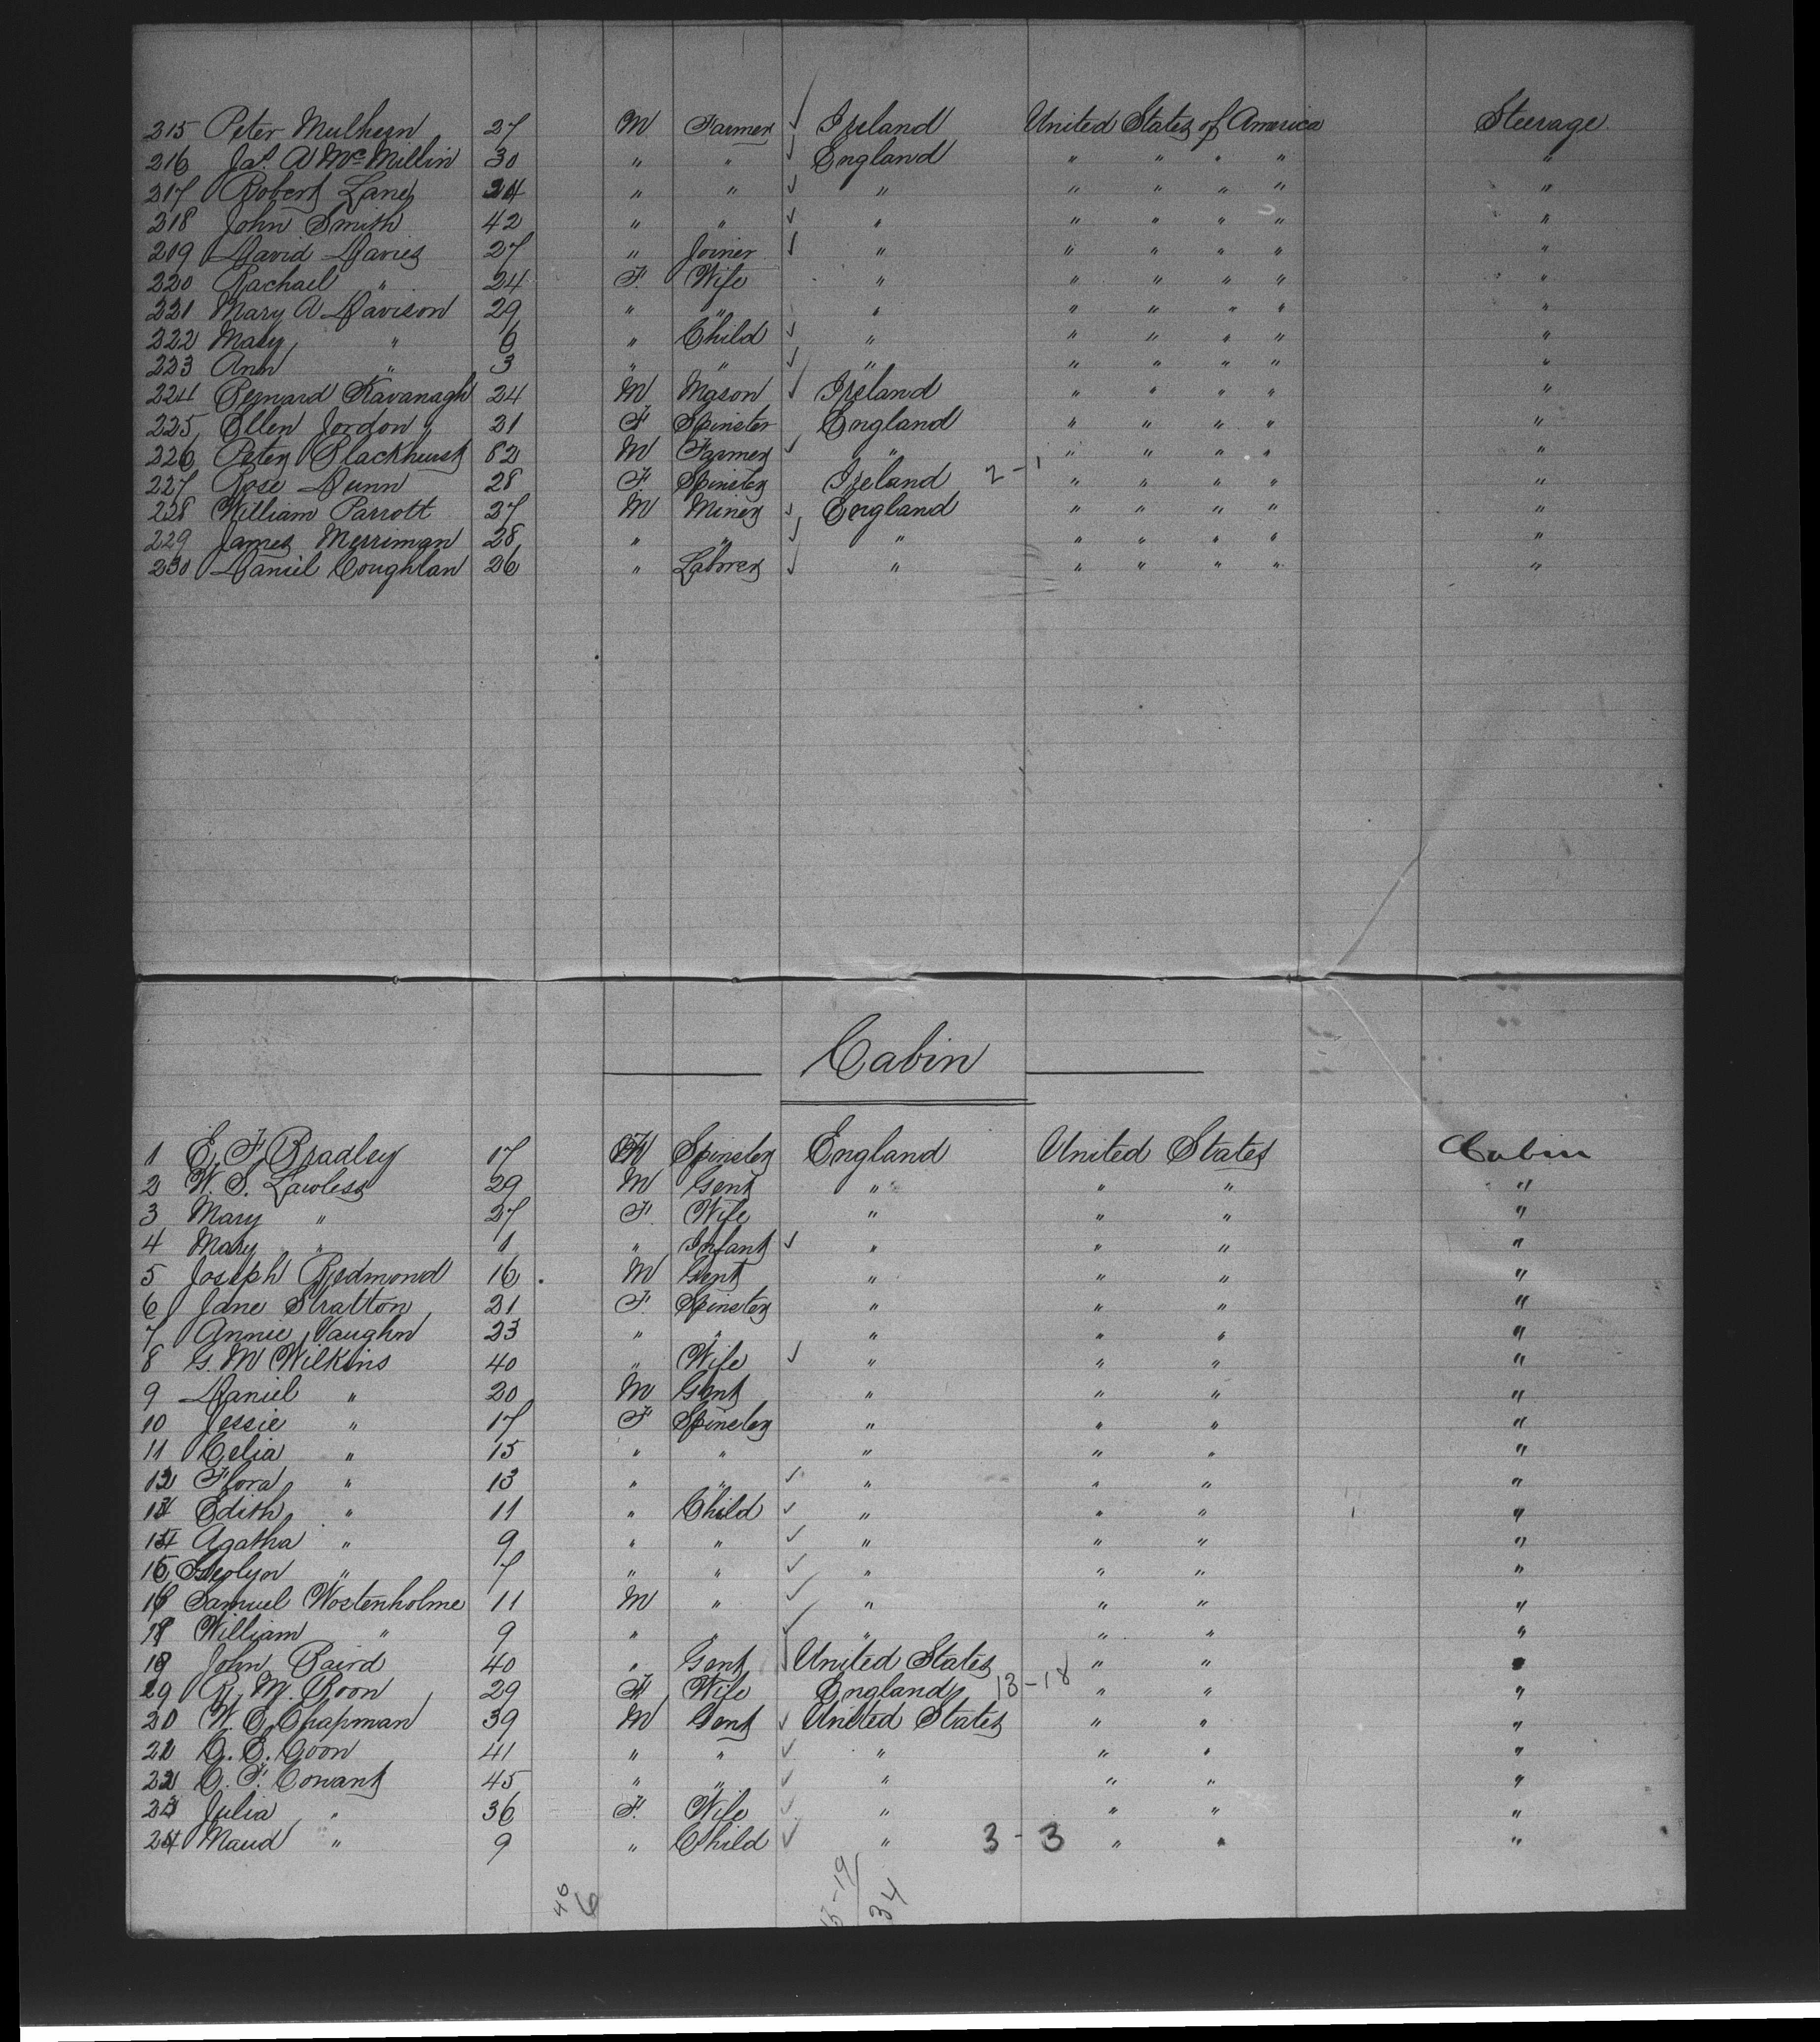 215 Peter Mulhern 27 M Farmer ✓ Ireland United States of America Steerage
216 Jas. A McMillin 30 " " ✓ England " " " " "
217 Robert Lane 24 " " ✓ " " " " " "
218 John Smith 42 " " ✓ " " " " " "
219 David Davies 27 " Joiner ✓ " " " " " "
220 Rachael " 24 F. Wife " " " " " "
221 Mary A Davison 29 " " " " " " " "
222 Mary " 6 " Child ✓ " " " " " "
223 Ann " 3 " " ✓ " " " " " "
224 Bernard Kavanagh 24 M Mason ✓ Ireland " " " " "
225 Ellen Jordon 21 F Spinster England " " " " "
226 Peter Blackhurst 52 M Farmer ✓ " " " " " "
227 Rose Dunn 28 F. Spinster Ireland 2-1 " " " " "
228 William Parrott 27 M Miner ✓ England " " " " "
229 James Merriman 28 " " ✓ " " " " " "
230 Daniel Coughlan 26 " Laborer ✓ " " " " " "
Cabin
1 E. F. Bradley 17 F Spinster England United States Cabin
2 W. S. Lawless 29 M Gent " " " "
3 Mary " 27 F. Wife " " " "
4 Mary " 1 " Infant ✓ " " " "
5 Joseph Redmond 16 M Gent " " " "
6 Jane Stratton 21 F. Spinster " " " "
7 Annie Vaughn 23 " " " " " "
8 G. M Wilkins 40 " Wife ✓ " " " "
9 Daniel " 20 M Gent " " " "
10 Jessie " 17 F Spinster " " " "
11 Celia " 15 " " " " " "
12 Flora " 13 " " ✓ " " " "
13 Edith " 11 " Child ✓ " " " "
14 Agatha " 9 " " ✓ " " " "
15 " 7 " " ✓ " " " "
16 Samuel Wostenholme 11 M " ✓ " " " "
17 William " 9 " " ✓ " " " "
18 John Baird 40 " Gent ✓ United States " " "
19 R. M. Boon 29 F Wife England 13-18 " " "
20 W. E. Chapman 39 M Gent ✓ United States " " "
21 C. E. Coon 41 " " ✓ " " " "
22 C. F. Conant 45 " " ✓ " " " "
23 Julia " 36 F. Wife ✓ " " " "
24 Maud " 9 " Child ✓ " 3-3 " " "
34